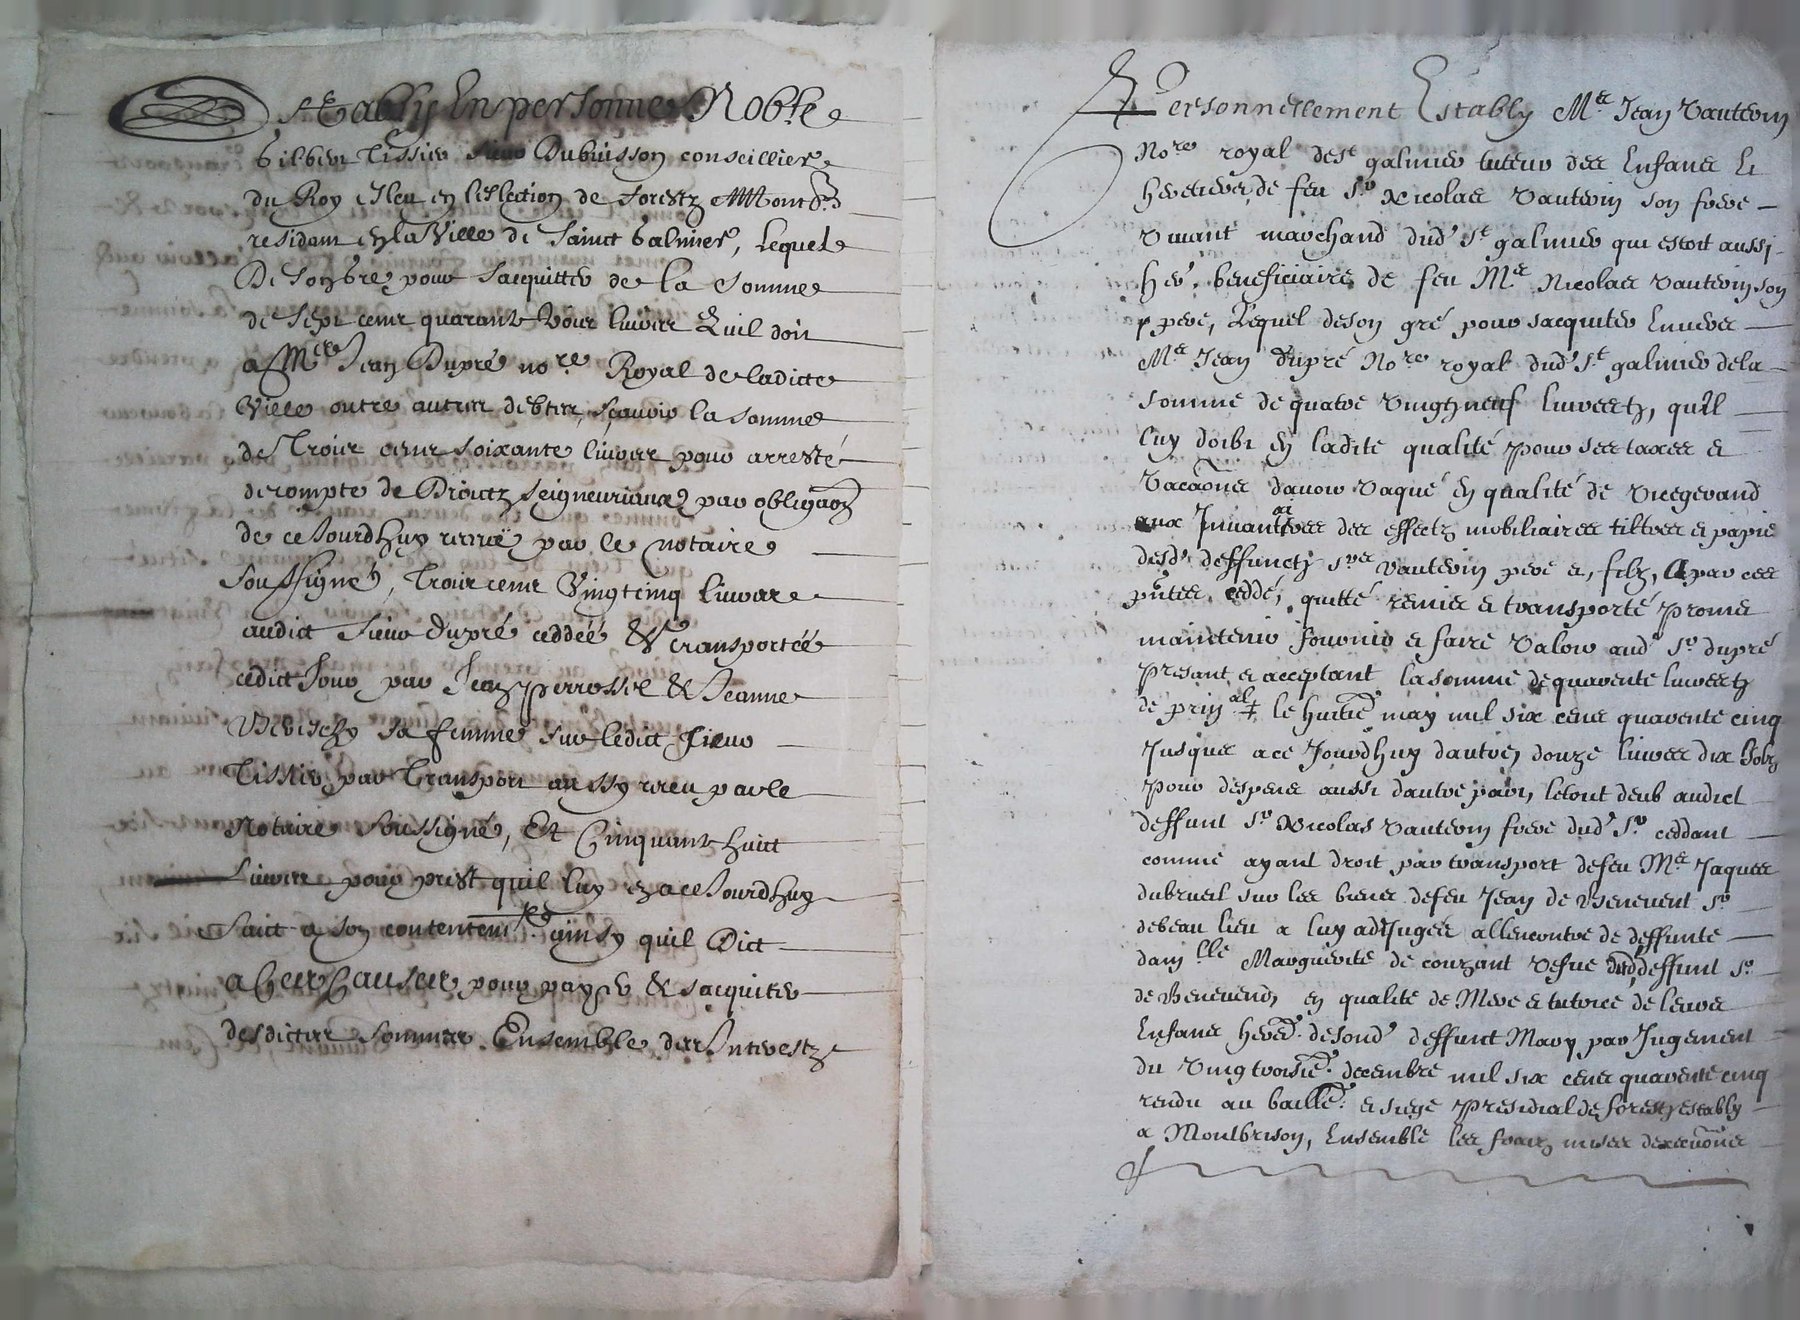 Estably En personne Noble
Gilbert Tissier sieur Dubuisson conseillier
du Roy esleu en leslection de forestz
residant en la Ville de Sainct Galmier, Lequel
De son gre, pour sacquitter de la somme
de sept cent quarante trois livres quil doit
a Mre Jean Dupré nore Royal de ladicte
Ville outre autres debtes, sçavoir la somme
de Trois cent soixante livres pour arresté
de compte de Droictz seigneuriaux par obligaon
de ce Jourdhuy receue par le notaire
soussigné, Trois cent Vingt cinq Livres
audict sieur dupré ceddéé & transportéé
cedict Jour par Jean perrossel & Jeanne
sa femme sur ledict sieur
Tissier par Transport aussy receu par le
Notaire soussigné, Et Cinquante huict
Livres pour prest quil luy en a ce Jourdhuy
faict a son contentemt ainsy quil Dict
a Ces Causes pour payer & sacquiter
desdictes sommes Ensemble des Interestz
Personnellement Estably Me Jean Vautrin
Nore royal de St galmier tuteur des Enfans Et
heretiers de feu Sr Nicolas Vautrin son frere
Vivant marchand dud St galmier qui estoit aussi
her. beneficiaire de feu Me Nicolas Vautrin son
pere, Lequel de son gré pour sacquiter Envers
Me Jean dupré Nore royal dud St galmier de la
somme de quatre Vingtz neuf livres, quil
luy doibt En ladite qualité pour ses taxes et
Vacaons davoir Vaqué en qualité de Vicegerand
aux Invantaires des effectz mobiliaires tiltres et papie
desd deffunctz Srs Vautrin pere et, filz, A par ces
pntes ceddé, quitté remis et transporté promis
maintenir fournir et faire Valoir aud Sr dupré
Presant et acceptant la somme de quarente livres
de prinal le huitie may mil six cens quarente cinq
Jusques a ce Jourdhuy dautre, douze livres dix solz
Pour despens aussi dautre part, le tout deub audict
deffunt Sr Nicolas Vautrin frere dud Sr ceddant
comme ayant droit par transport de feu Me Jaques
dubrueil sur les biens de feu Jean de Benevent Sr
de beau lieu a luy adJuges allencontre de deffunte
damlle Marguerite de couzant Vefue dud deffunt Sr
de Benevend, en qualité de Mere et tutrice de leurs
Enfans hered. de sond deffunct Mary par Jugement
du Vingt troisie. decembre mil six cens quarente cinq
rendu au baille. et siege Presidial de forestz estably
a Montbrison, Ensemble les fraiz mises